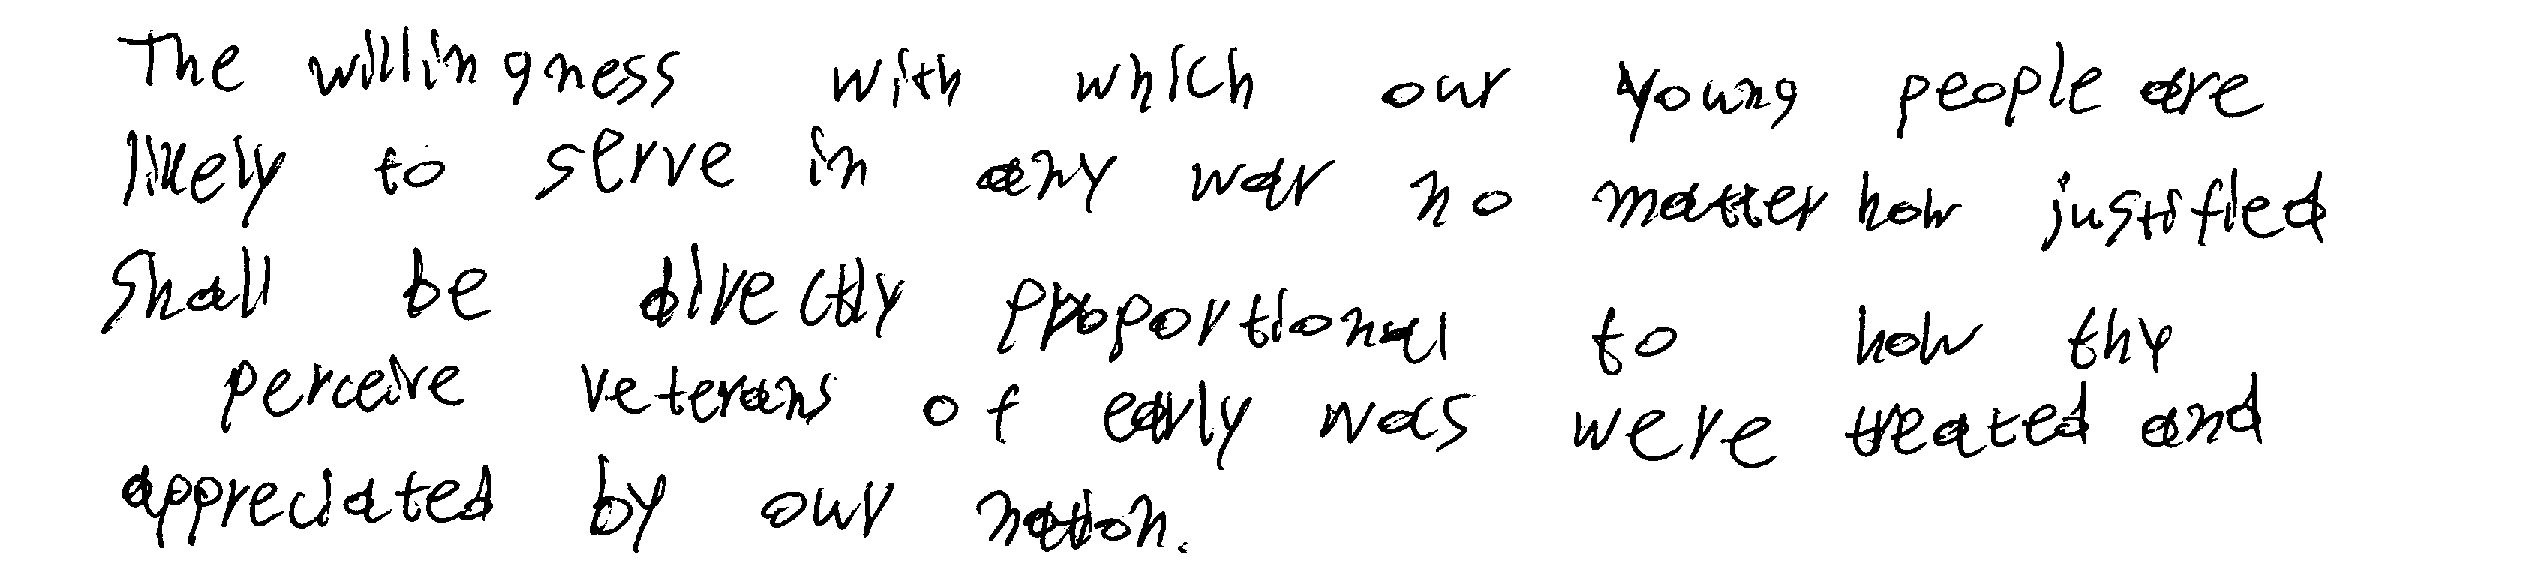 The willingness with which our young people are
likely to serve in any war no matter how justified
shall be directly proportional to how thy
perceive veterans of early was were treated and
appreciated by our nation.